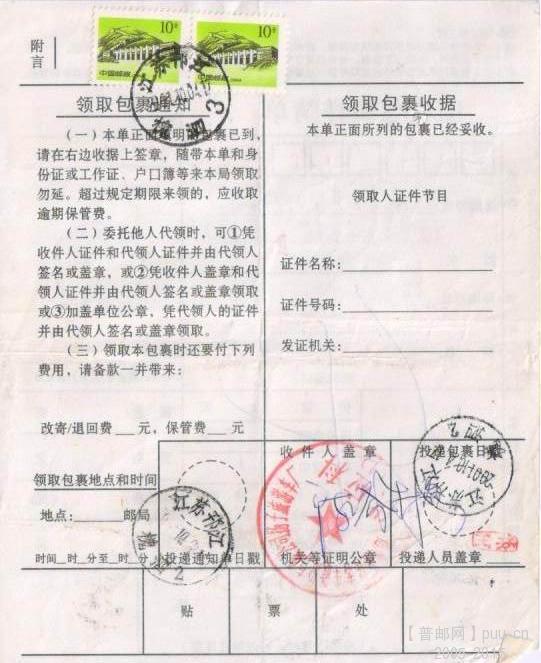 10分
10分
中国邮政
中国邮政
附言
领取包裹通知
（一）本单正面说明的包裹已到，
请在右边收据上签章，随带本单和身
份证或工作证、户口簿等来本局领取
勿延。超过规定期限来领的，应收取
逾期保管费。
（二）委托他人代领时，可①凭
收件人证件和代领人证件并由代领人
签名或盖章，或②凭收件人盖章和代
领人证件并由代领人签名或盖章领取
或③加盖单位公章，凭代领人的证件
并由代领人签名或盖章领取。
（三）领取本包裹时还要付下列
费用，请备款一并带来：
改寄/退回费___元，保管费___元
领取包裹收据
本单正面所列的包裹已经妥收。
领取人证件节目
证件名称：
证件号码：
发证机关：
领取包裹地点和时间
地点：____邮局
时间__时__分至__时__分
投递通知单日戳
收件人盖章
机关等证明公章
投递包裹日戳
投递人员盖章
江苏邗江
2
江苏邗江
3
贴 票 处
【普邮网】puu.cn
2005-2015